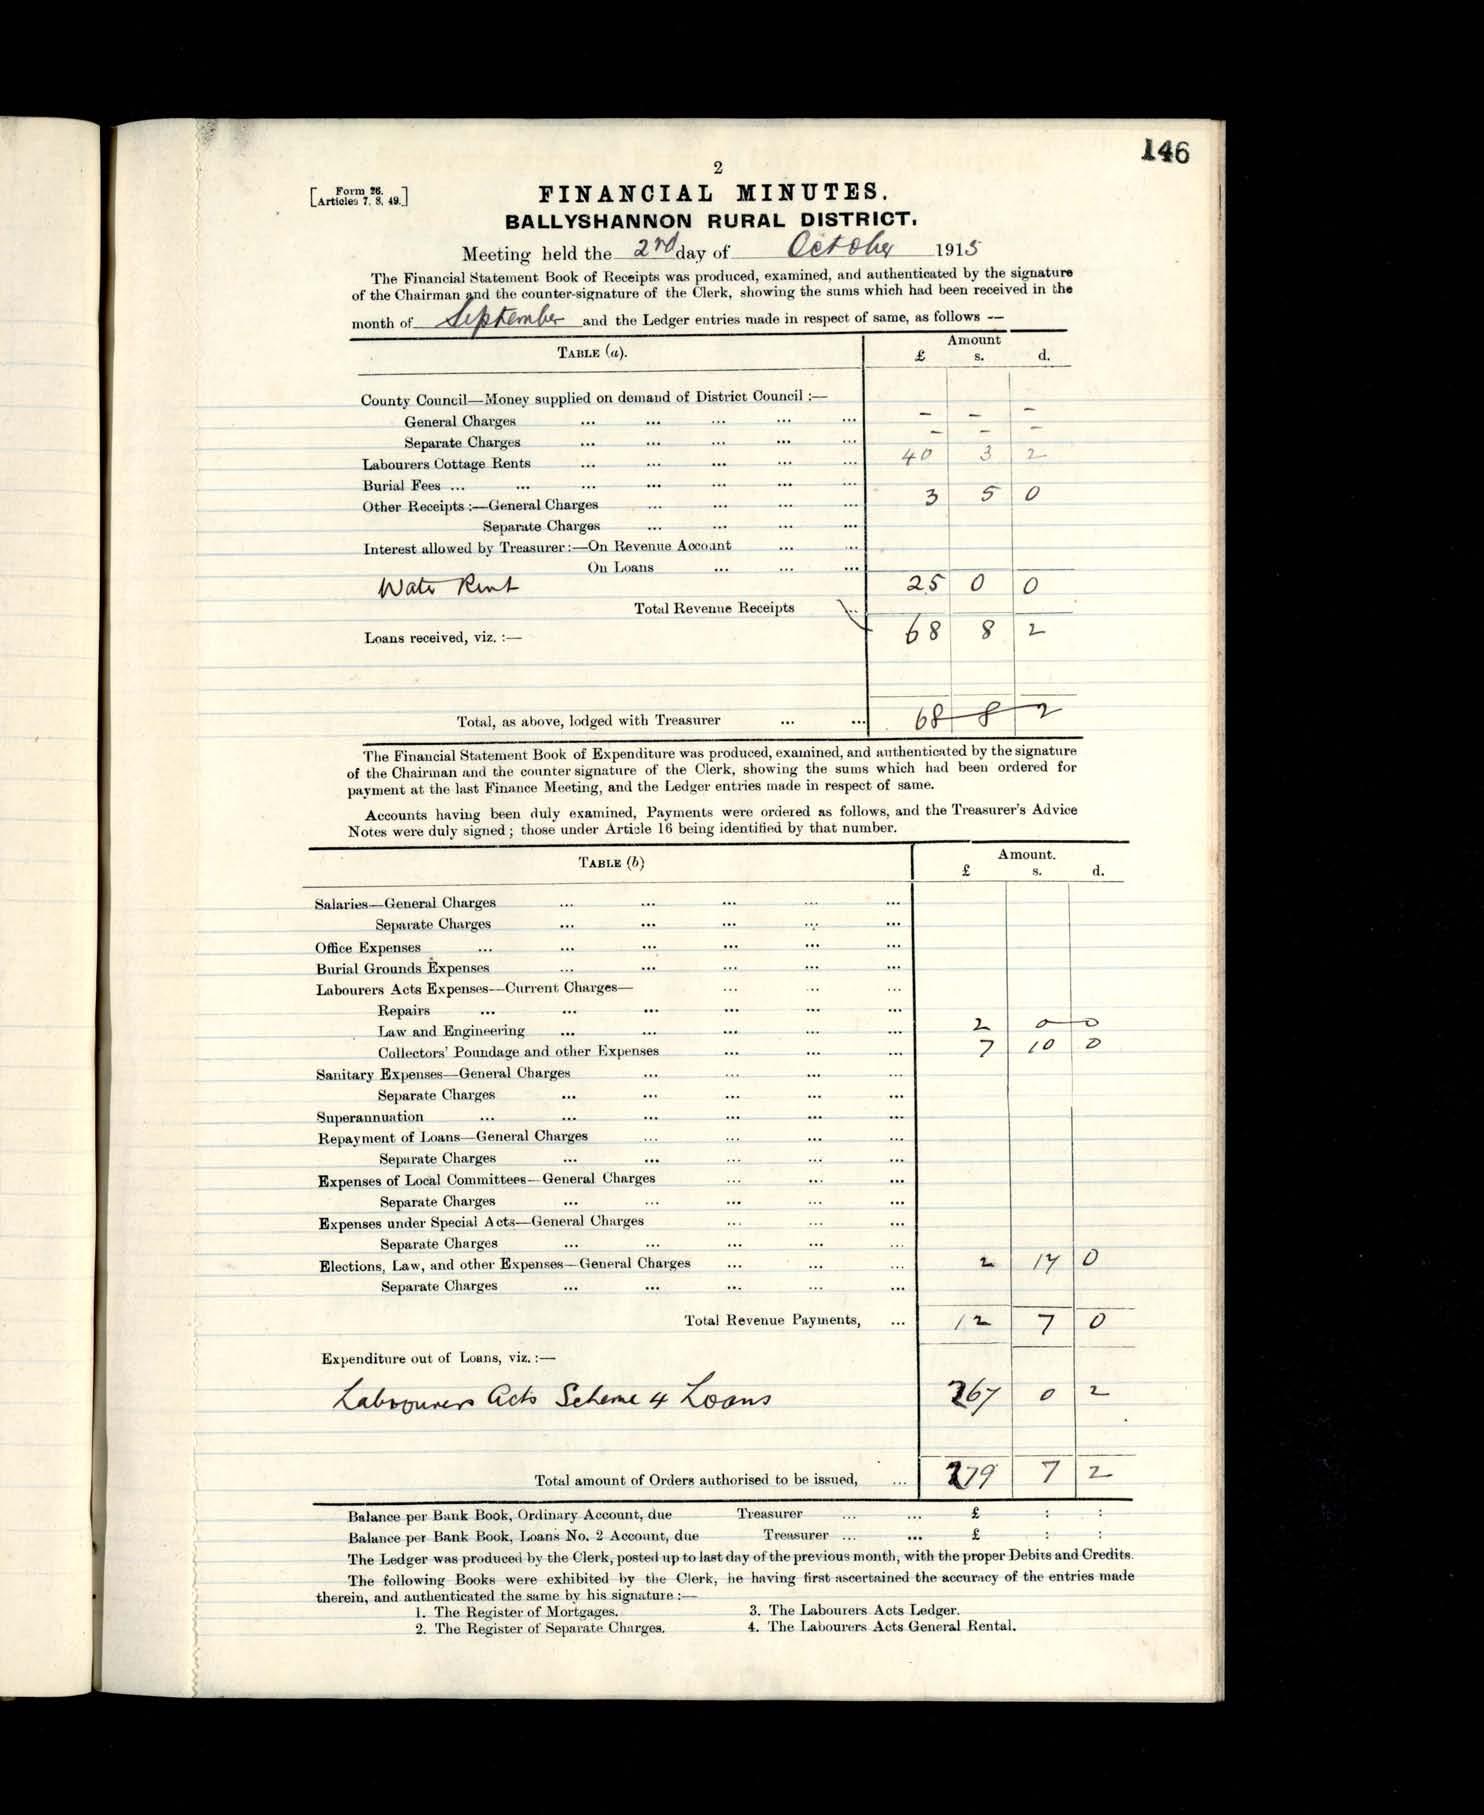 146
2
[Form 26. Articles 7, 8, 49.]
FINANCIAL MINUTES.
BALLYSHANNON RURAL DISTRICT.
Meeting held the 2nd day of October 1915
The Financial Statement Book of Receipts was produced, examined, and authenticated by the signature
of the Chairman and the counter-signature of the Clerk, showing the sums which had been received in the
month of September and the Ledger entries made in respect of same, as follows —
TABLE (a). Amount
£ s. d.
County Council—Money supplied on demand of District Council :—
General Charges ... ... ... ... ... – – –
Separate Charges ... ... ... ... ... – – –
Labourers Cottage Rents ... ... ... ... ... 40 3 2
Burial Fees ... ... ... ... ... ... ...
Other Receipts :—General Charges ... ... ... ... 3 5 0
Separate Charges ... ... ... ...
Interest allowed by Treasurer :—On Revenue Account ... ...
On Loans ... ... ...
Water Rent 25 0 0
Total Revenue Receipts ...
Loans received, viz. :— 68 8 2
Total, as above, lodged with Treasurer ... ... 68 8 2
The Financial Statement Book of Expenditure was produced, examined, and authenticated by the signature
of the Chairman and the counter signature of the Clerk, showing the sums which had been ordered for
payment at the last Finance Meeting, and the Ledger entries made in respect of same.
Accounts having been duly examined, Payments were ordered as follows, and the Treasurer's Advice
Notes were duly signed ; those under Article 16 being identified by that number.
TABLE (b) Amount.
£ s. d.
Salaries—General Charges ... ... ... ... ...
Separate Charges ... ... ... ... ...
Office Expenses ... ... ... ... ... ...
Burial Grounds Expenses ... ... ... ... ...
Labourers Acts Expenses—Current Charges— ... ... ...
Repairs ... ... ... ... ... ...
Law and Engineering ... ... ... ... ... 2 0 0
Collectors' Poundage and other Expenses ... ... ... 7 10 0
Sanitary Expenses—General Charges ... ... ... ...
Separate Charges ... ... ... ... ...
Superannuation ... ... ... ... ... ...
Repayment of Loans—General Charges ... ... ... ...
Separate Charges ... ... ... ... ...
Expenses of Local Committees—General Charges ... ... ...
Separate Charges ... ... ... ... ...
Expenses under Special Acts—General Charges ... ... ...
Separate Charges ... ... ... ... ...
Elections, Law, and other Expenses—General Charges ... ... ... 2 17 0
Separate Charges ... ... ... ... ...
Total Revenue Payments, ... 12 7 0
Expenditure out of Loans, viz. :—
Labourers Acts Scheme 4 Loans 267 0 2
Total amount of Orders authorised to be issued, ... 279 7 2
Balance per Bank Book, Ordinary Account, due Treasurer ... ... £ : :
Balance per Bank Book, Loans No. 2 Account, due Treasurer ... ... £ : :
The Ledger was produced by the Clerk, posted up to last day of the previous month, with the proper Debits and Credits.
The following Books were exhibited by the Clerk, he having first ascertained the accuracy of the entries made
therein, and authenticated the same by his signature :—
1. The Register of Mortgages. 3. The Labourers Acts Ledger.
2. The Register of Separate Charges. 4. The Labourers Acts General Rental.